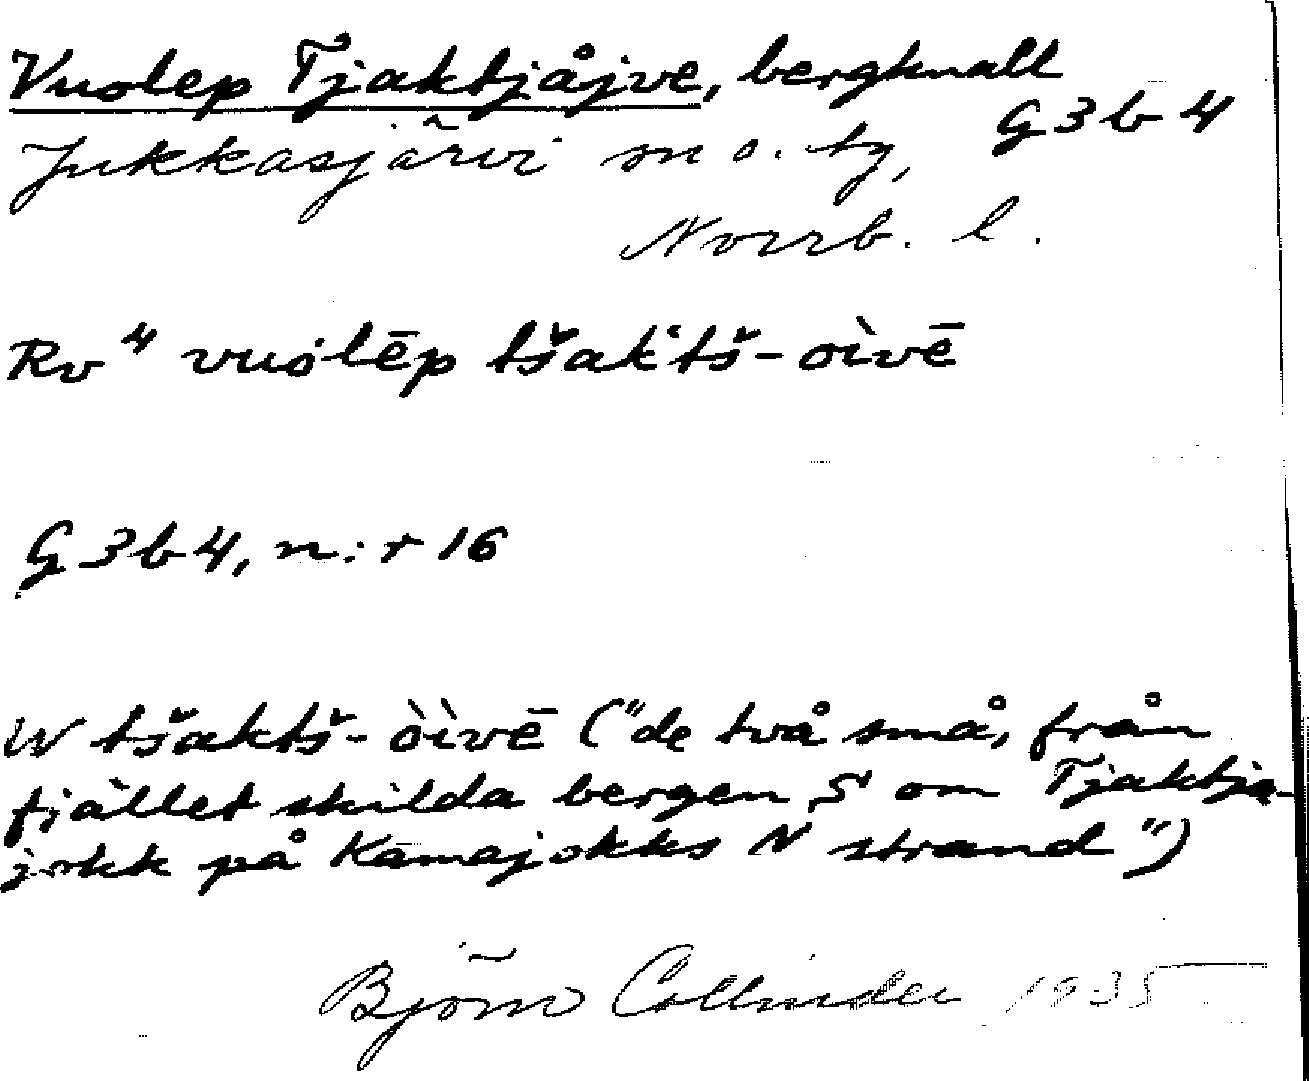 Vuolep Tjaktjåjve, bergknall
G3b4
Jukkasjärvi sn o. tg,
Norrb. l.
Rv⁴ vuolēp tšaktš-oìvē
G3b4, n:r 16
W tšaktš-òìvē ("de två små, från
fjället skilda bergen S om Tjaktja-
jokk på Kamajokks N strand")
Björn Collinder 1935